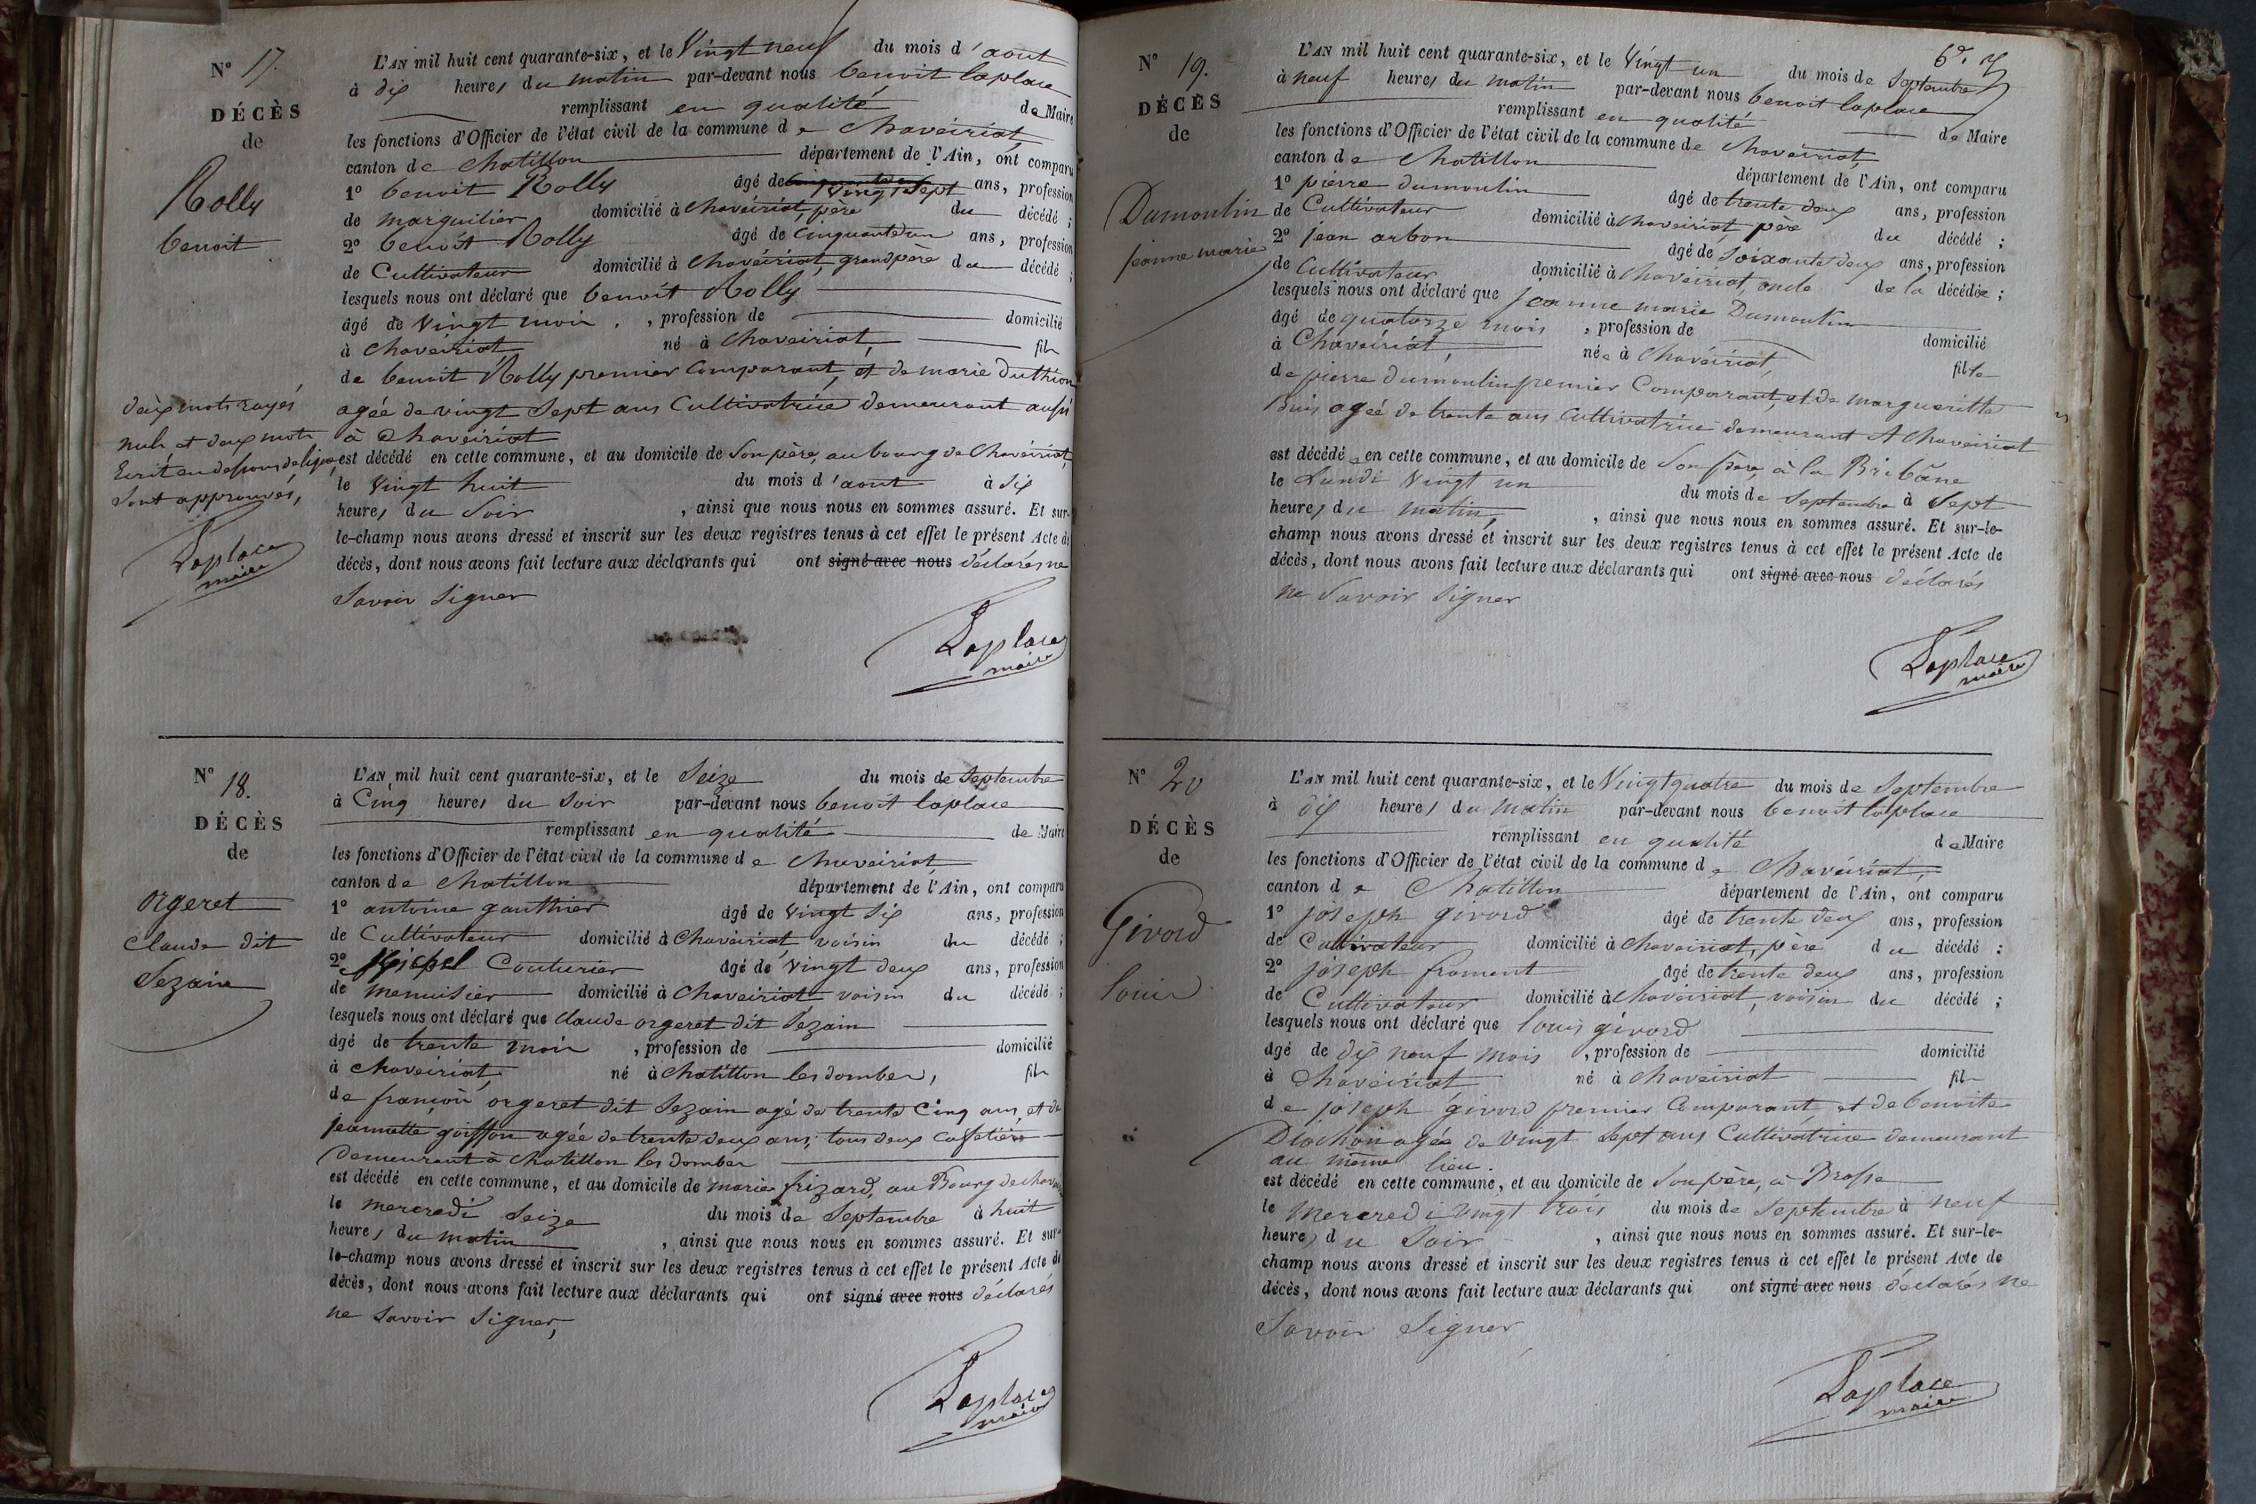 N° 17.
DÉCÈS
de
Rolly
benoit
L'AN mil huit cent quarante-six, et le Vingt neuf du mois d'aout
à dix heures du matin par-devant nous benoit laplace
remplissant en qualité de Maire
les fonctions d'Officier de l'état civil de la commune de chaveiriat,
canton de chatillon département de l'Ain, ont comparu
1° benoit Rolly âgé de vingt sept ans, profession
de marguilier domicilié à chaveiriat, père du décédé ;
2° benoit Rolly âgé de cinquante un ans, profession
de Cultivateur domicilié à chaveiriat, grand père du décédé ;
lesquels nous ont déclaré que benoit Rolly
âgé de vingt mois , profession de domicilié
à chaveiriat né à chaveiriat, fils
de benoit Rolly premier Comparant, et de marie Duthion
agée de vingt Sept ans Cultivatrice demeurant aussi
à chaveiriat
est décédé en cette commune, et au domicile de Son père, au bourg de chaveiriat,
le vingt huit du mois d'aout à Six
heures du Soir , ainsi que nous nous en sommes assuré. Et sur-
le-champ nous avons dressé et inscrit sur les deux registres tenus à cet effet le présent Acte de
décès, dont nous avons fait lecture aux déclarants qui ont signé avec nous déclarés ne
Savoir Signer
Laplace
maire
deux mots rayés
nuls et deux mots
Ecrit au dessous de ligne
Sont approuvés,
Laplace
maire
N° 18.
DÉCÈS
de
orgeret
claude dit
Sezain
L'AN mil huit cent quarante-six, et le Seize du mois de Septembre
à Cinq heures du Soir par-devant nous benoit laplace
remplissant en qualité de Maire
les fonctions d'Officier de l'état civil de la commune de chaveiriat,
canton de chatillon département de l'Ain, ont comparu
1° antoine gauthier âgé de vingt Six ans, profession
de Cultivateur domicilié à chaveiriat voisin du décédé ;
2° Michel Couturier âgé de vingt deux ans, profession
de menuisier domicilié à chaveiriat voisin du décédé ;
lesquels nous ont déclaré que claude orgeret dit Sezain
âgé de trente mois , profession de domicilié
à chaveiriat, né à chatillon les dombes, fils
de françois orgeret dit Sezain agé de trente Cinq ans, et de
jeannette goiffon agée de trente deux ans, tous deux Cafetiers
Demeurant à chatillon les dombes
est décédé en cette commune, et au domicile de marie frizard, au Bourg de
le mercredi Seize du mois de Septembre à huit
heures du matin , ainsi que nous nous en sommes assuré. Et sur-
le-champ nous avons dressé et inscrit sur les deux registres tenus à cet effet le présent Acte de
décès, dont nous avons fait lecture aux déclarants qui ont signé avec nous déclarés
ne Savoir Signer,
Laplace
maire
N° 19.
DÉCÈS
de
Dumoulin
jeanne marie
L'AN mil huit cent quarante-six, et le Vingt un du mois de Septembre
à neuf heures du matin par-devant nous benoit laplace
remplissant en qualité de Maire
les fonctions d'Officier de l'état civil de la commune de chaveiriat,
canton de chatillon département de l'Ain, ont comparu
1° pierre dumoulin âgé de trente deux ans, profession
de Cultivateur domicilié à chaveiriat père du décédé ;
2° jean arbon âgé de Soixante deux ans, profession
de Cultivateur domicilié à chaveiriat, oncle de la décédée ;
lesquels nous ont déclaré que jeanne marie Dumoulin
âgé de quatorze mois , profession de domicilié
à Chaveiriat, née à chaveiriat, fille
de pierre dumoulin premier Comparant, et de margueritte
Buis agée de trente ans Cultivatrice demeurant A chaveiriat
est décédée en cette commune, et au domicile de Son père, à la Bribâne
le Lundi Vingt un du mois de Septembre à Sept
heures du matin, , ainsi que nous nous en sommes assuré. Et sur-le-
champ nous avons dressé et inscrit sur les deux registres tenus à cet effet le présent Acte de
décès, dont nous avons fait lecture aux déclarants qui ont signé avec nous déclarés
ne Savoir Signer
Laplace
maire
N° 20
DÉCÈS
de
Givord
louis
L'AN mil huit cent quarante-six, et le Vingt quatre du mois de Septembre
à dix heures du matin par-devant nous benoit laplace
remplissant en qualité de Maire
les fonctions d'Officier de l'état civil de la commune de Chaveiriat,
canton de Chatillon département de l'Ain, ont comparu
1° joseph givord âgé de trente deux ans, profession
de Cultivateur domicilié à chaveiriat, père du décédé :
2° joseph froment âgé de trente deux ans, profession
de Cultivateur domicilié à chaveiriat, voisin du décédé ;
lesquels nous ont déclaré que louis givord
âgé de dix neuf mois , profession de domicilié
à Chaveiriat né à chaveiriat fils
de joseph givord premier Comparant, et de benoite
agée de vingt Sept ans Cultivatrice demeurant
au même lieu.
est décédé en cette commune, et au domicile de Son père, à Brosse
le mercredi vingt trois du mois de Septembre à neuf
heures du Soir , ainsi que nous nous en sommes assuré. Et sur-le-
champ nous avons dressé et inscrit sur les deux registres tenus à cet effet le présent Acte de
décès, dont nous avons fait lecture aux déclarants qui ont signé avec nous déclarés ne
Savoir Signer
Laplace
maire